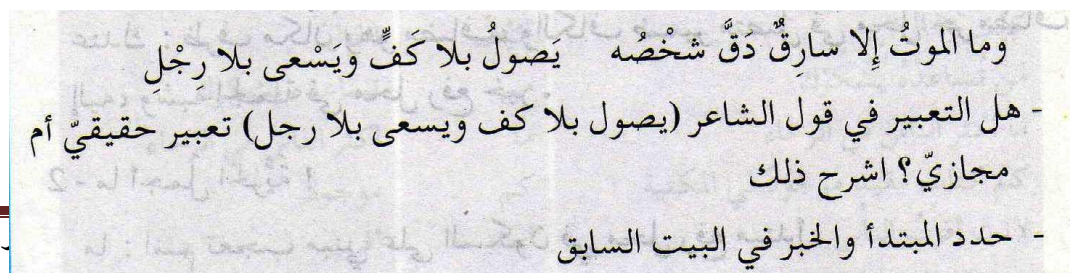 وما الموتُ إِلا سارِقٌ دَقَّ شخْصُه يَصولُ بلا كَفٍّ ويَسْعى بلا رِجْلِ
- هل التعبير في قول الشاعر (يصول بلا كف ويسعى بلا رجل) تعبير حقيقيّ أم
مجازيّ؟ اشرح ذلك
- حدد المبتدأ والخبر في البيت السابق